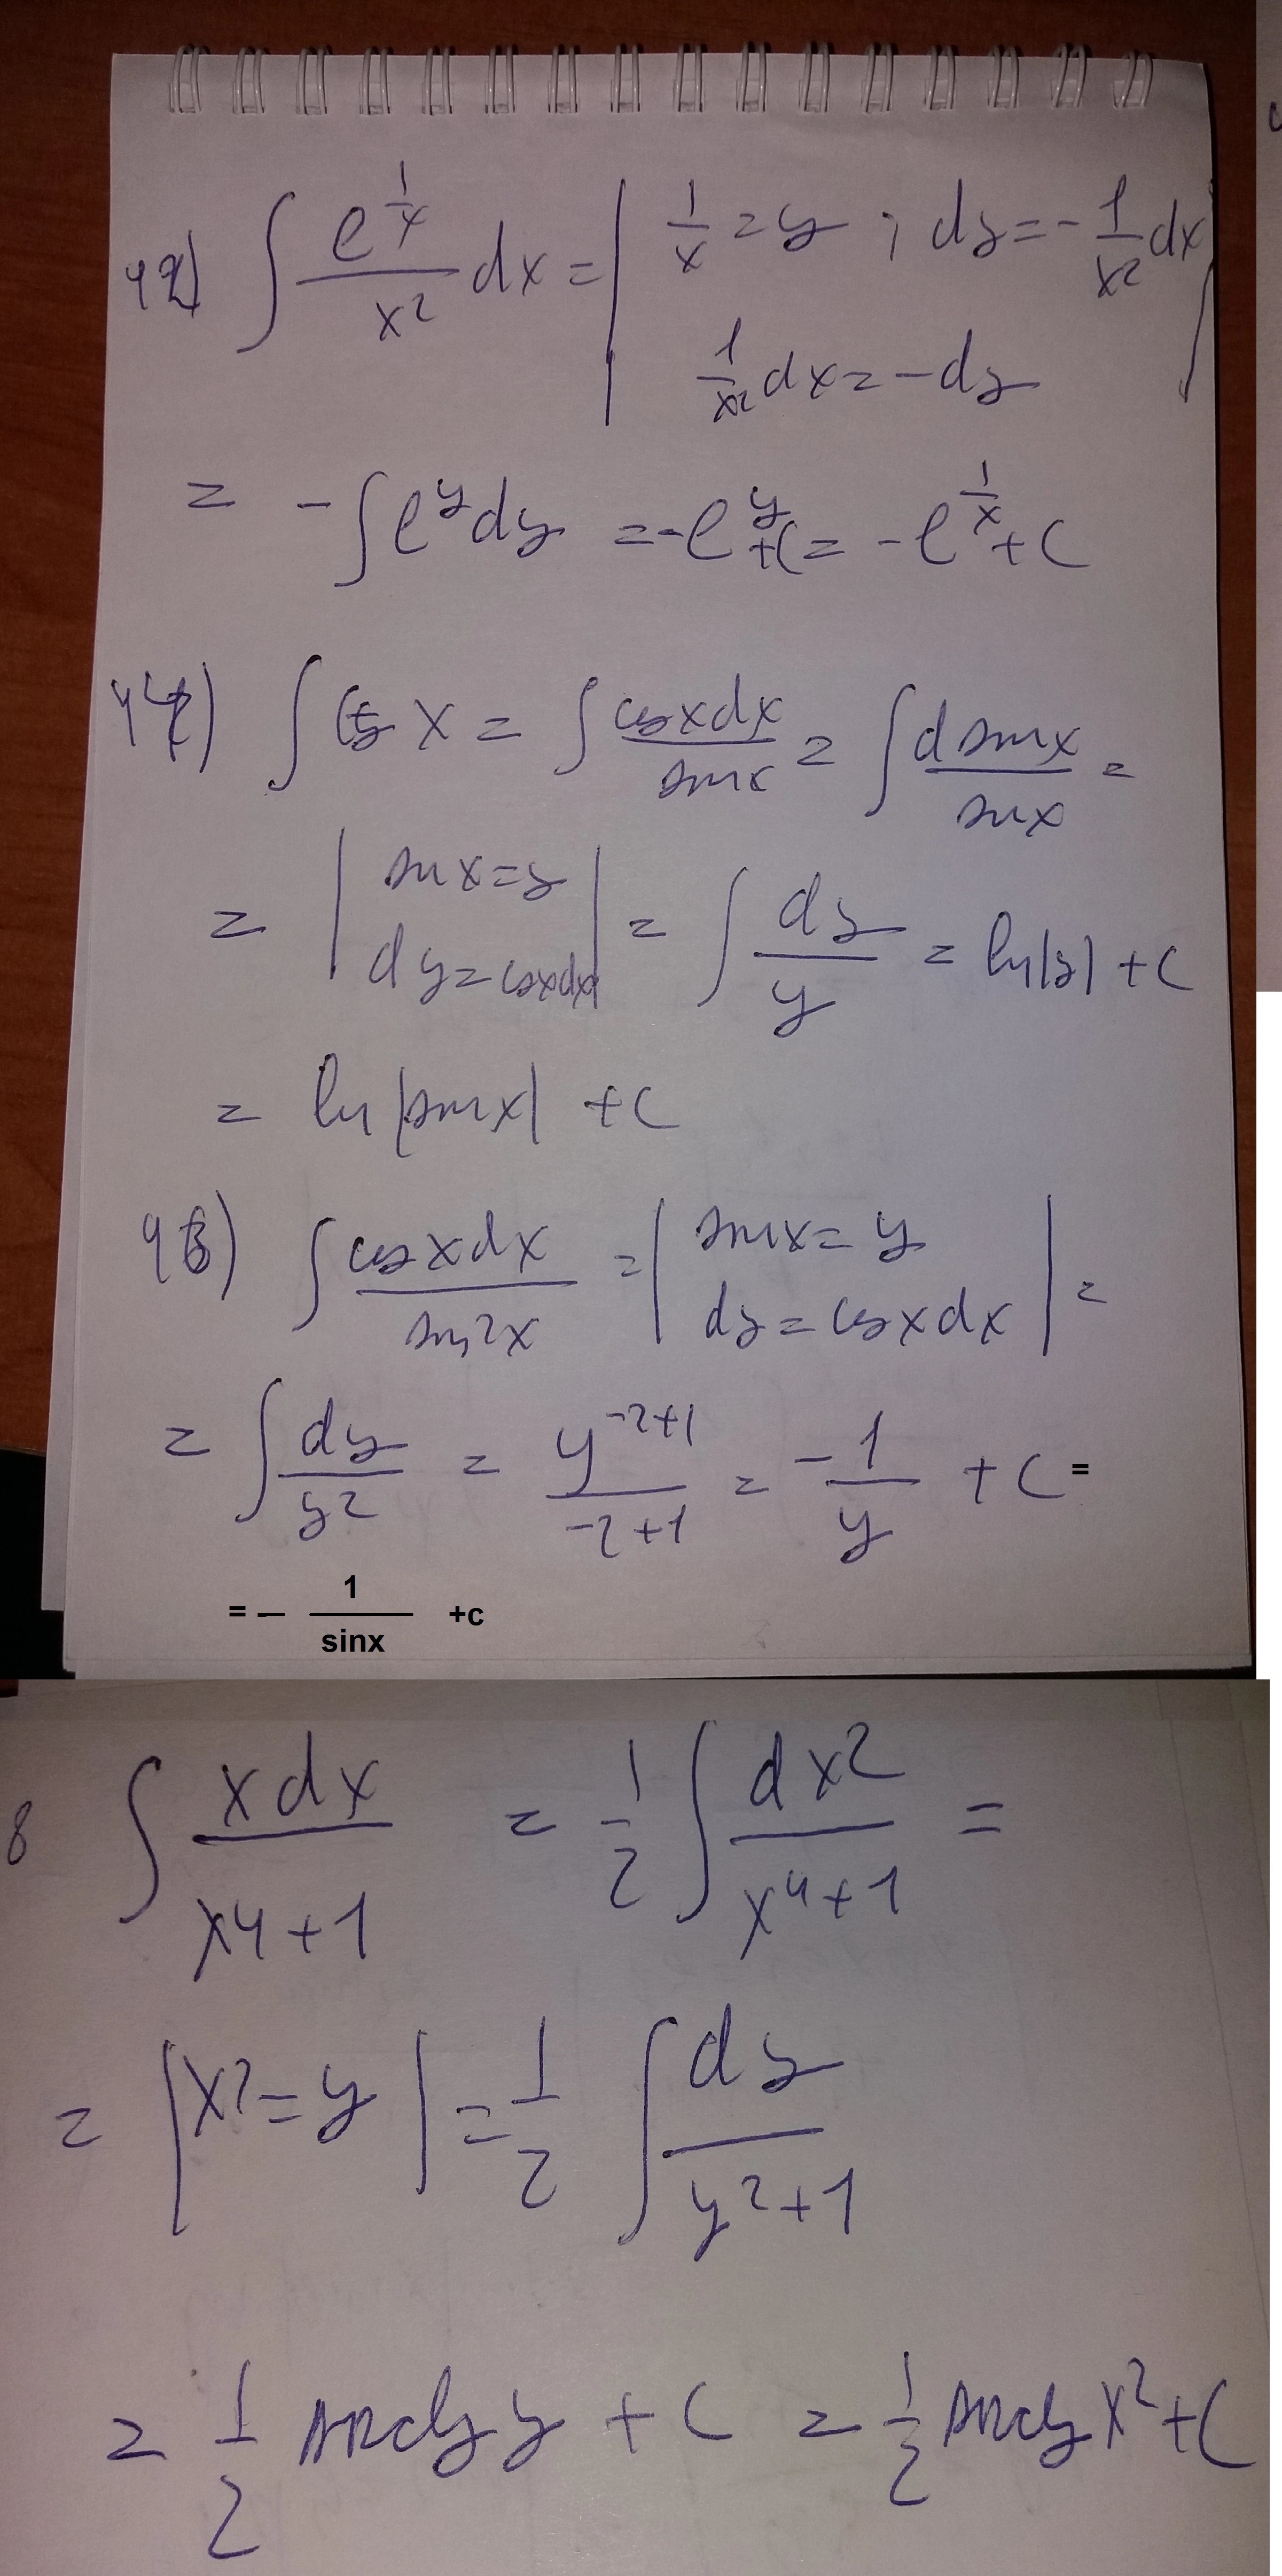 42) ∫ e^(1/x) / x² dx = | 1/x = y ; dy = - 1/x² dx
1/x² dx = - dy |
= - ∫ e^y dy = - e^y + C = - e^(1/x) + C
∫ ctg x = ∫ cos x dx / sin x = ∫ d sin x / sin x =
= | sin x = y
dy = cos x dx | = ∫ dy / y = ln |y| + C
= ln |sin x| + C
∫ cos x dx / sin² x = | sin x = y
dy = cos x dx | =
= ∫ dy / y² = y^(-2+1) / -2+1 = - 1/y + C =
= - 1 / sinx +c
8 ∫ x dx / x⁴ + 1 = 1/2 ∫ dx² / x⁴ + 1 =
= | x² = y | = 1/2 ∫ dy / y² + 1
= 1/2 arctg y + C = 1/2 arctg x² + C